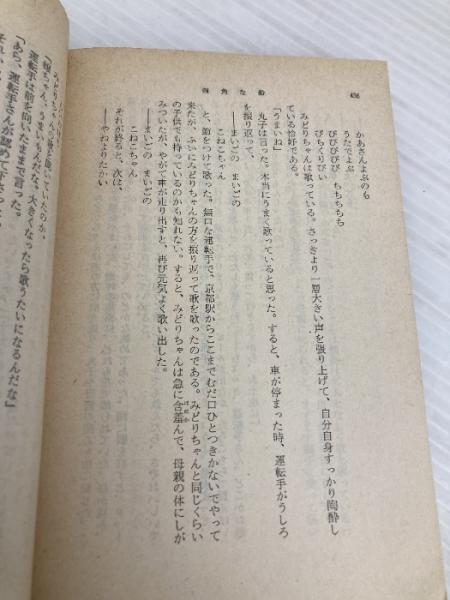 四角な船
436
かあさんよぶのも
うたでよぶ
ぴぴぴぴぴ ちちちちち
ぴちくりぴい
みどりちゃんは歌っている。さっきより一層大きい声を張り上げて、自分自身すっかり陶酔し
ている恰好である。
「うまいね」
丸子は言った。本当にうまく歌っていると思った。すると、車が停まった時、運転手がうしろ
を振り返って、
――まいごの まいごの
こねこちゃん
と、節をつけて歌った。無口な運転手で、京都駅からここまでむだ口ひとつきかないでやって
来たが、ふいにみどりちゃんの方を振り返って歌を歌ったのである。みどりちゃんと同じくらい
の子供でも持っているのかも知れない。すると、みどりちゃんは急に含羞んで、母親の体にしが
みついたが、やがて車が走り出すと、再び元気よく歌い出した。
――まいごの まいごの
こねこちゃん
それが終ると、次は、
――やねよりたかい
みどりちゃんの歌を聞いていたのか、
「嬢ちゃん、うまいもんだな。大きくなったら歌うたいになるんだな」
運転手は前を向いたままで言った。
「あら、運転手さんが認めて下さった